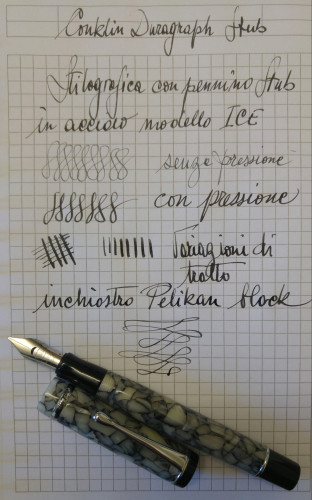 Conklin Duragraph Stub
Stilografica con pennino Stub
in acciaio modello ICE
senza pressione
con pressione
Variazioni di
tratto
inchiostro Pelikan black